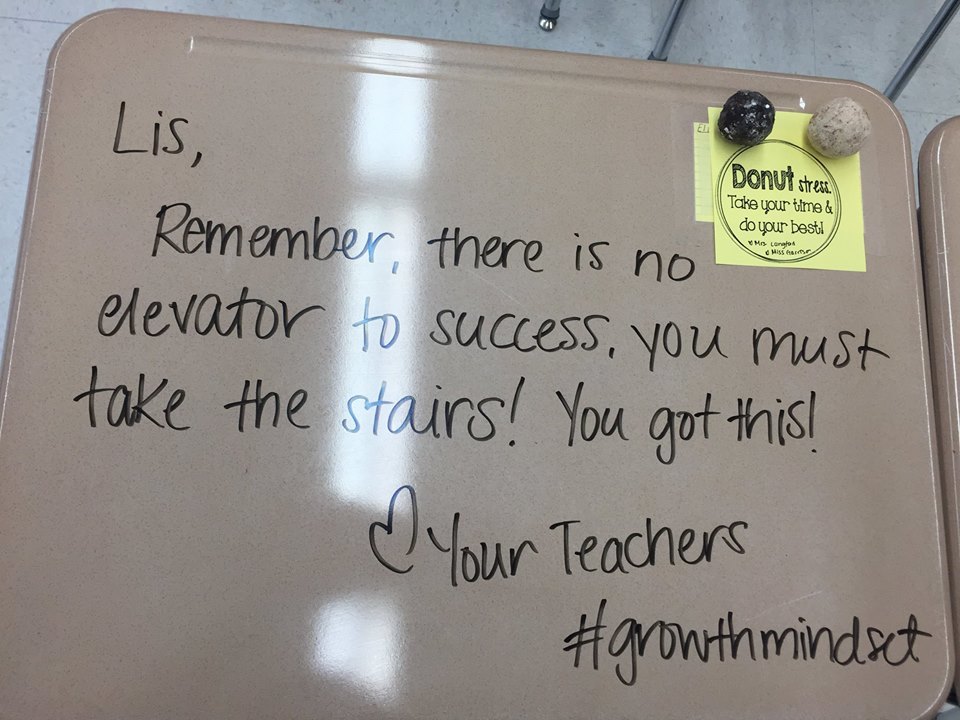 Lis,
Remember, there is no
elevator to success, you must
take the stairs! You got this!
♡ Your Teachers
#growthmindset
Donut stress.
Take your time &
do your best!
Mrs. Langford
Miss Harrison